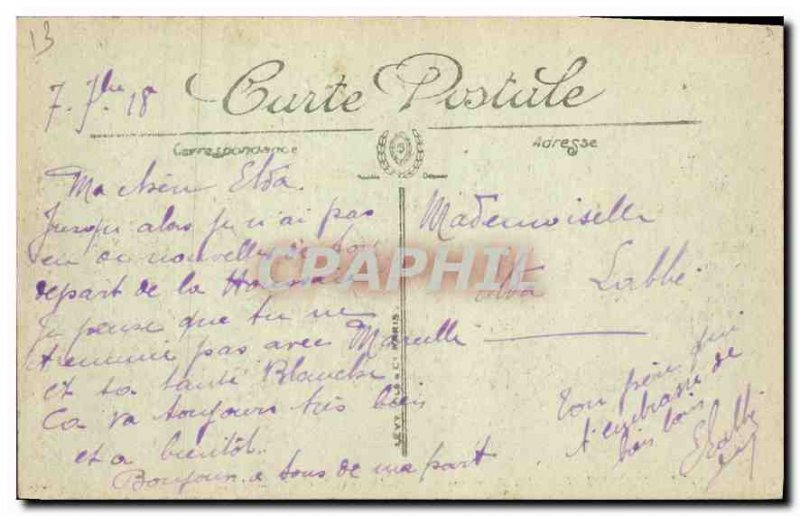 13
7. 7bre 18
Carte Postale
Correspondance
Adresse
Ma chère Elba.
Jusqu'alors je n'ai pas
eu de nouvelle de ton
départ de la
je pense que tu ne
t'ennuie pas avec Marcelle
et ta tante Blanche
Ca va toujours très bien
et a bientôt.
Bonjour a tous de ma part
Mademoiselle
Elba Labbé
Ton père qui
t'embrasse de
bien loin
Labbé
CPAPHIL
PARIS